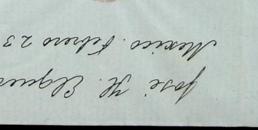 José H. Elgues
Mexico. Febrero 23